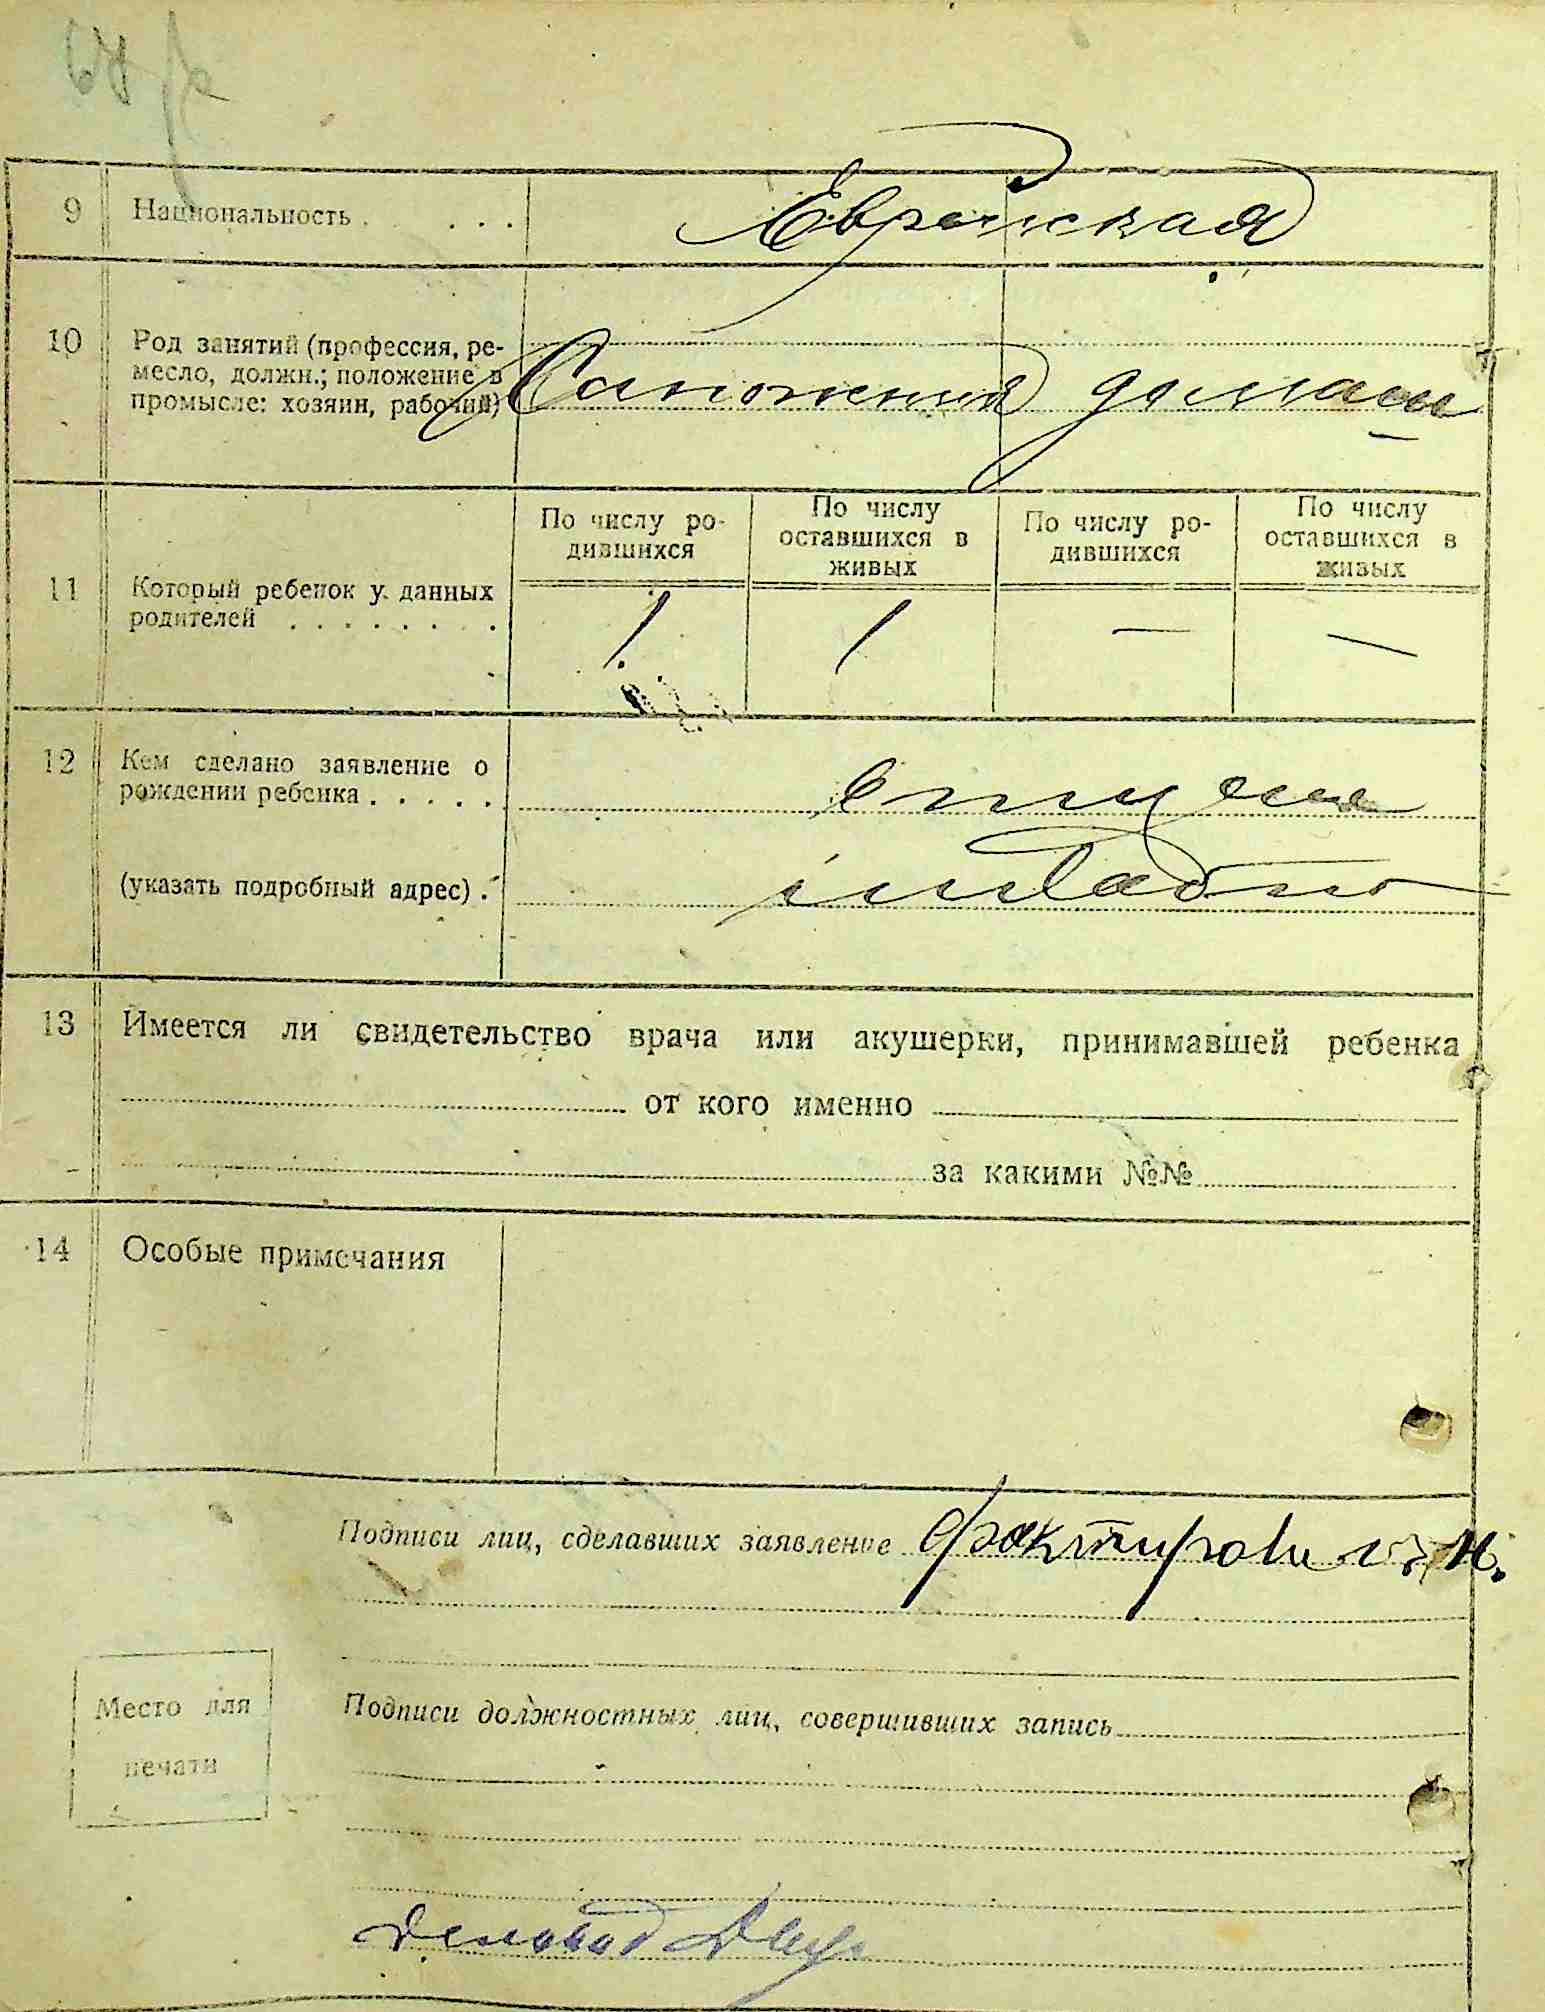 9 Национальность . . . . . Еврейская
10 Род занятий (профессия, ре-
месло, должн.; положение в
промысле: хозяин, рабочий)
По числу ро-
дившихся
По числу
оставшихся в
живых
По числу ро-
дившихся
По числу
оставшихся в
живых
11 Который ребенок у данных
родителей . . . . . . . . 1 1 — —
12 Кем сделано заявление о
рождении ребенка . . . . .
(указать подробный адрес) .
13 Имеется ли свидетельство врача или акушерки, принимавшей ребенка
от кого именно
за какими №№
14 Особые примечания
Подписи лиц, сделавших заявление
Место для
печати
Подписи должностных лиц, совершивших запись